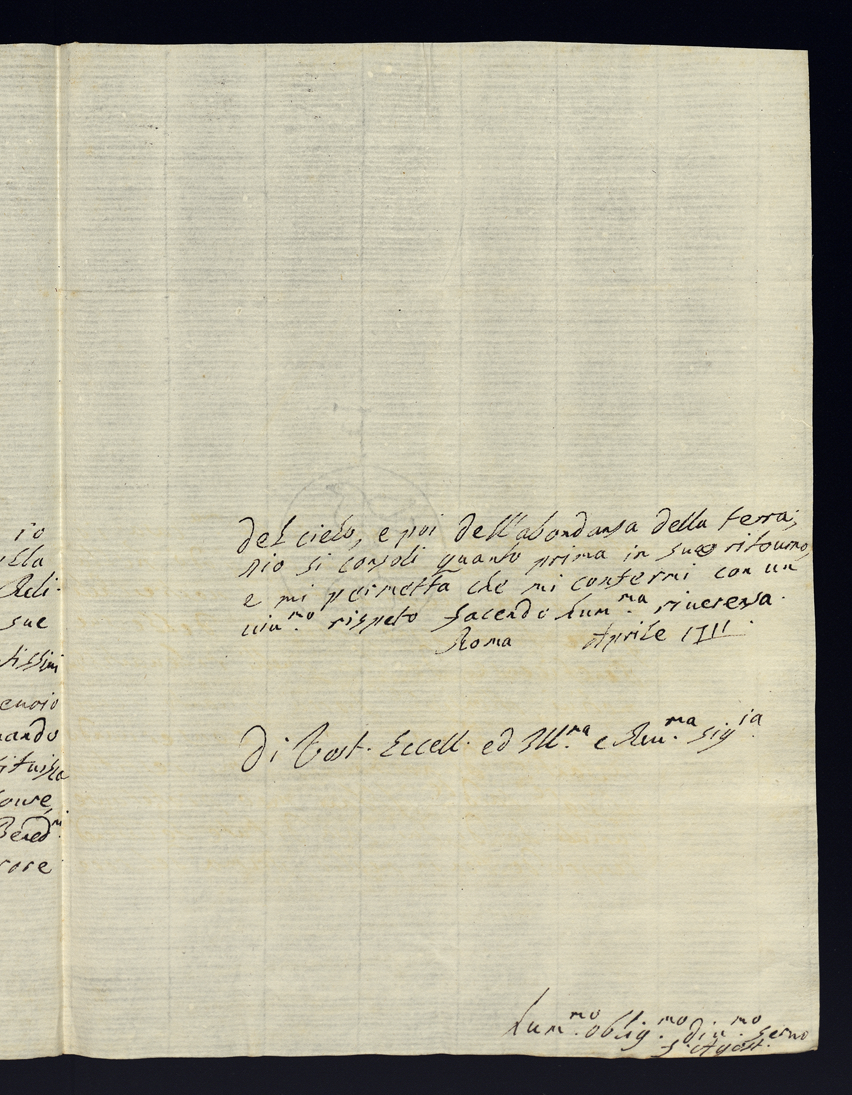 ro
ella
Reli-
sue
tissimi
enoio
nando
tituita
loure,
Bened.^m
rore
del cielo, e poi dell'abondansa della terra;
nio si consoli quanto prima in suo ritourno,
e mi permetta che mi confermi con un
uiu.^mo rispeto facendo hum.^ma riuerensa.
Roma Aprile 1711.
Di Vost. Eccell. ed Ill.^ma e Reu.^ma sig^ia.
hum.^mo oblig.^mo diu.^mo seruo
S. Agost.